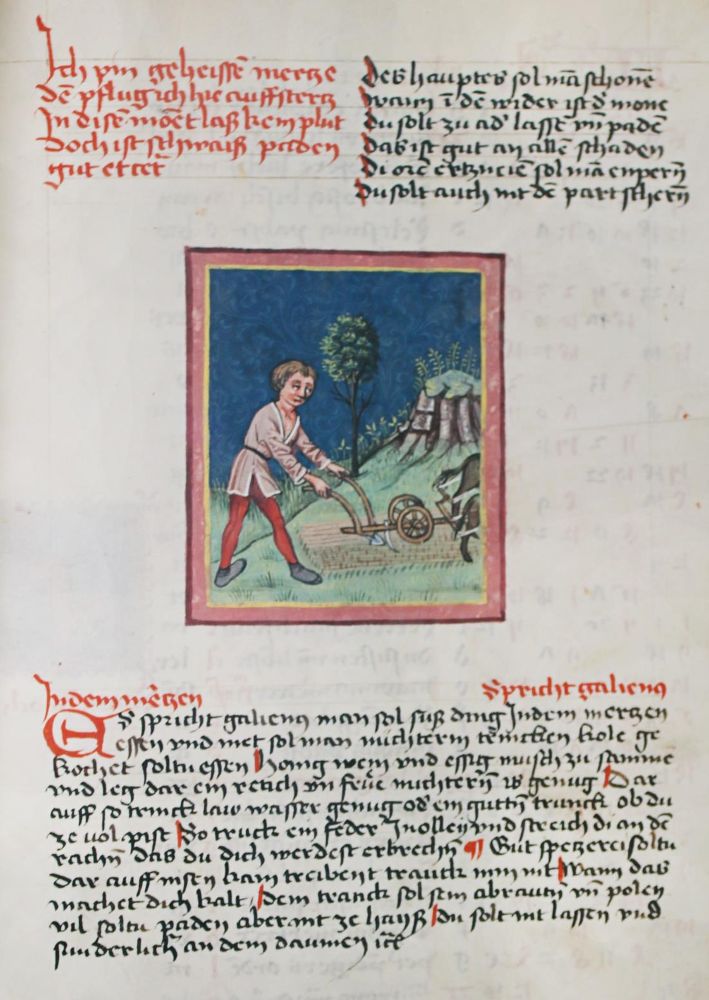 Ich pin geheissē mertze
dē pflug ich hie auff stertz
In disē monēt laß kein plut
Doch ist schwaiß paden
gut et cet̄
Des hauptes sol mā schonē
wann ī dē wider ist d' mone
du solt zu ad' lassē vn̄ padē
das ist gut an allē schaden
Di orē ertzneiē sol mā enpern̄
Du solt auch nit dē part schern̄
In dem mertzen
Es spricht galienus
Es spricht galienus man sol suß ding In dem mertzen
essen vnd met sol man nuchtern trincken kole ge
kochet soltu essen honig wein vnd essig misch zu samme
vnd leg dar ein retich vn̄ nuchtern̄ is genug Dar
auff so trinck law wasser genug od' ein guttn̄ trunck ob du
ze vol pist So truck ein feder In olley vnd streich di an dē
rachn̄ das du dich werdest erbrechn̄ ¶ Gut spezerei soltu
dar auff nisen kain treibent tranck nim nit wann das
machet dich kalt, dem tranck sol sein abrautn̄ vn̄ polen
vil soltu paden aber nit ze haiß du solt nit lassen vnd
sunderlich an dem daumen